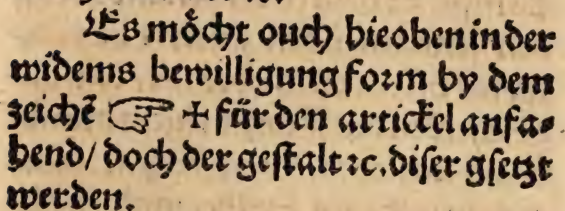 Es möcht ouch hieoben in der
widems bewilligung form by dem
zeichẽ ☞ + für den artickel anfa⸗
hend/ doch der gestalt ꝛc. diser gsetzt
werden.